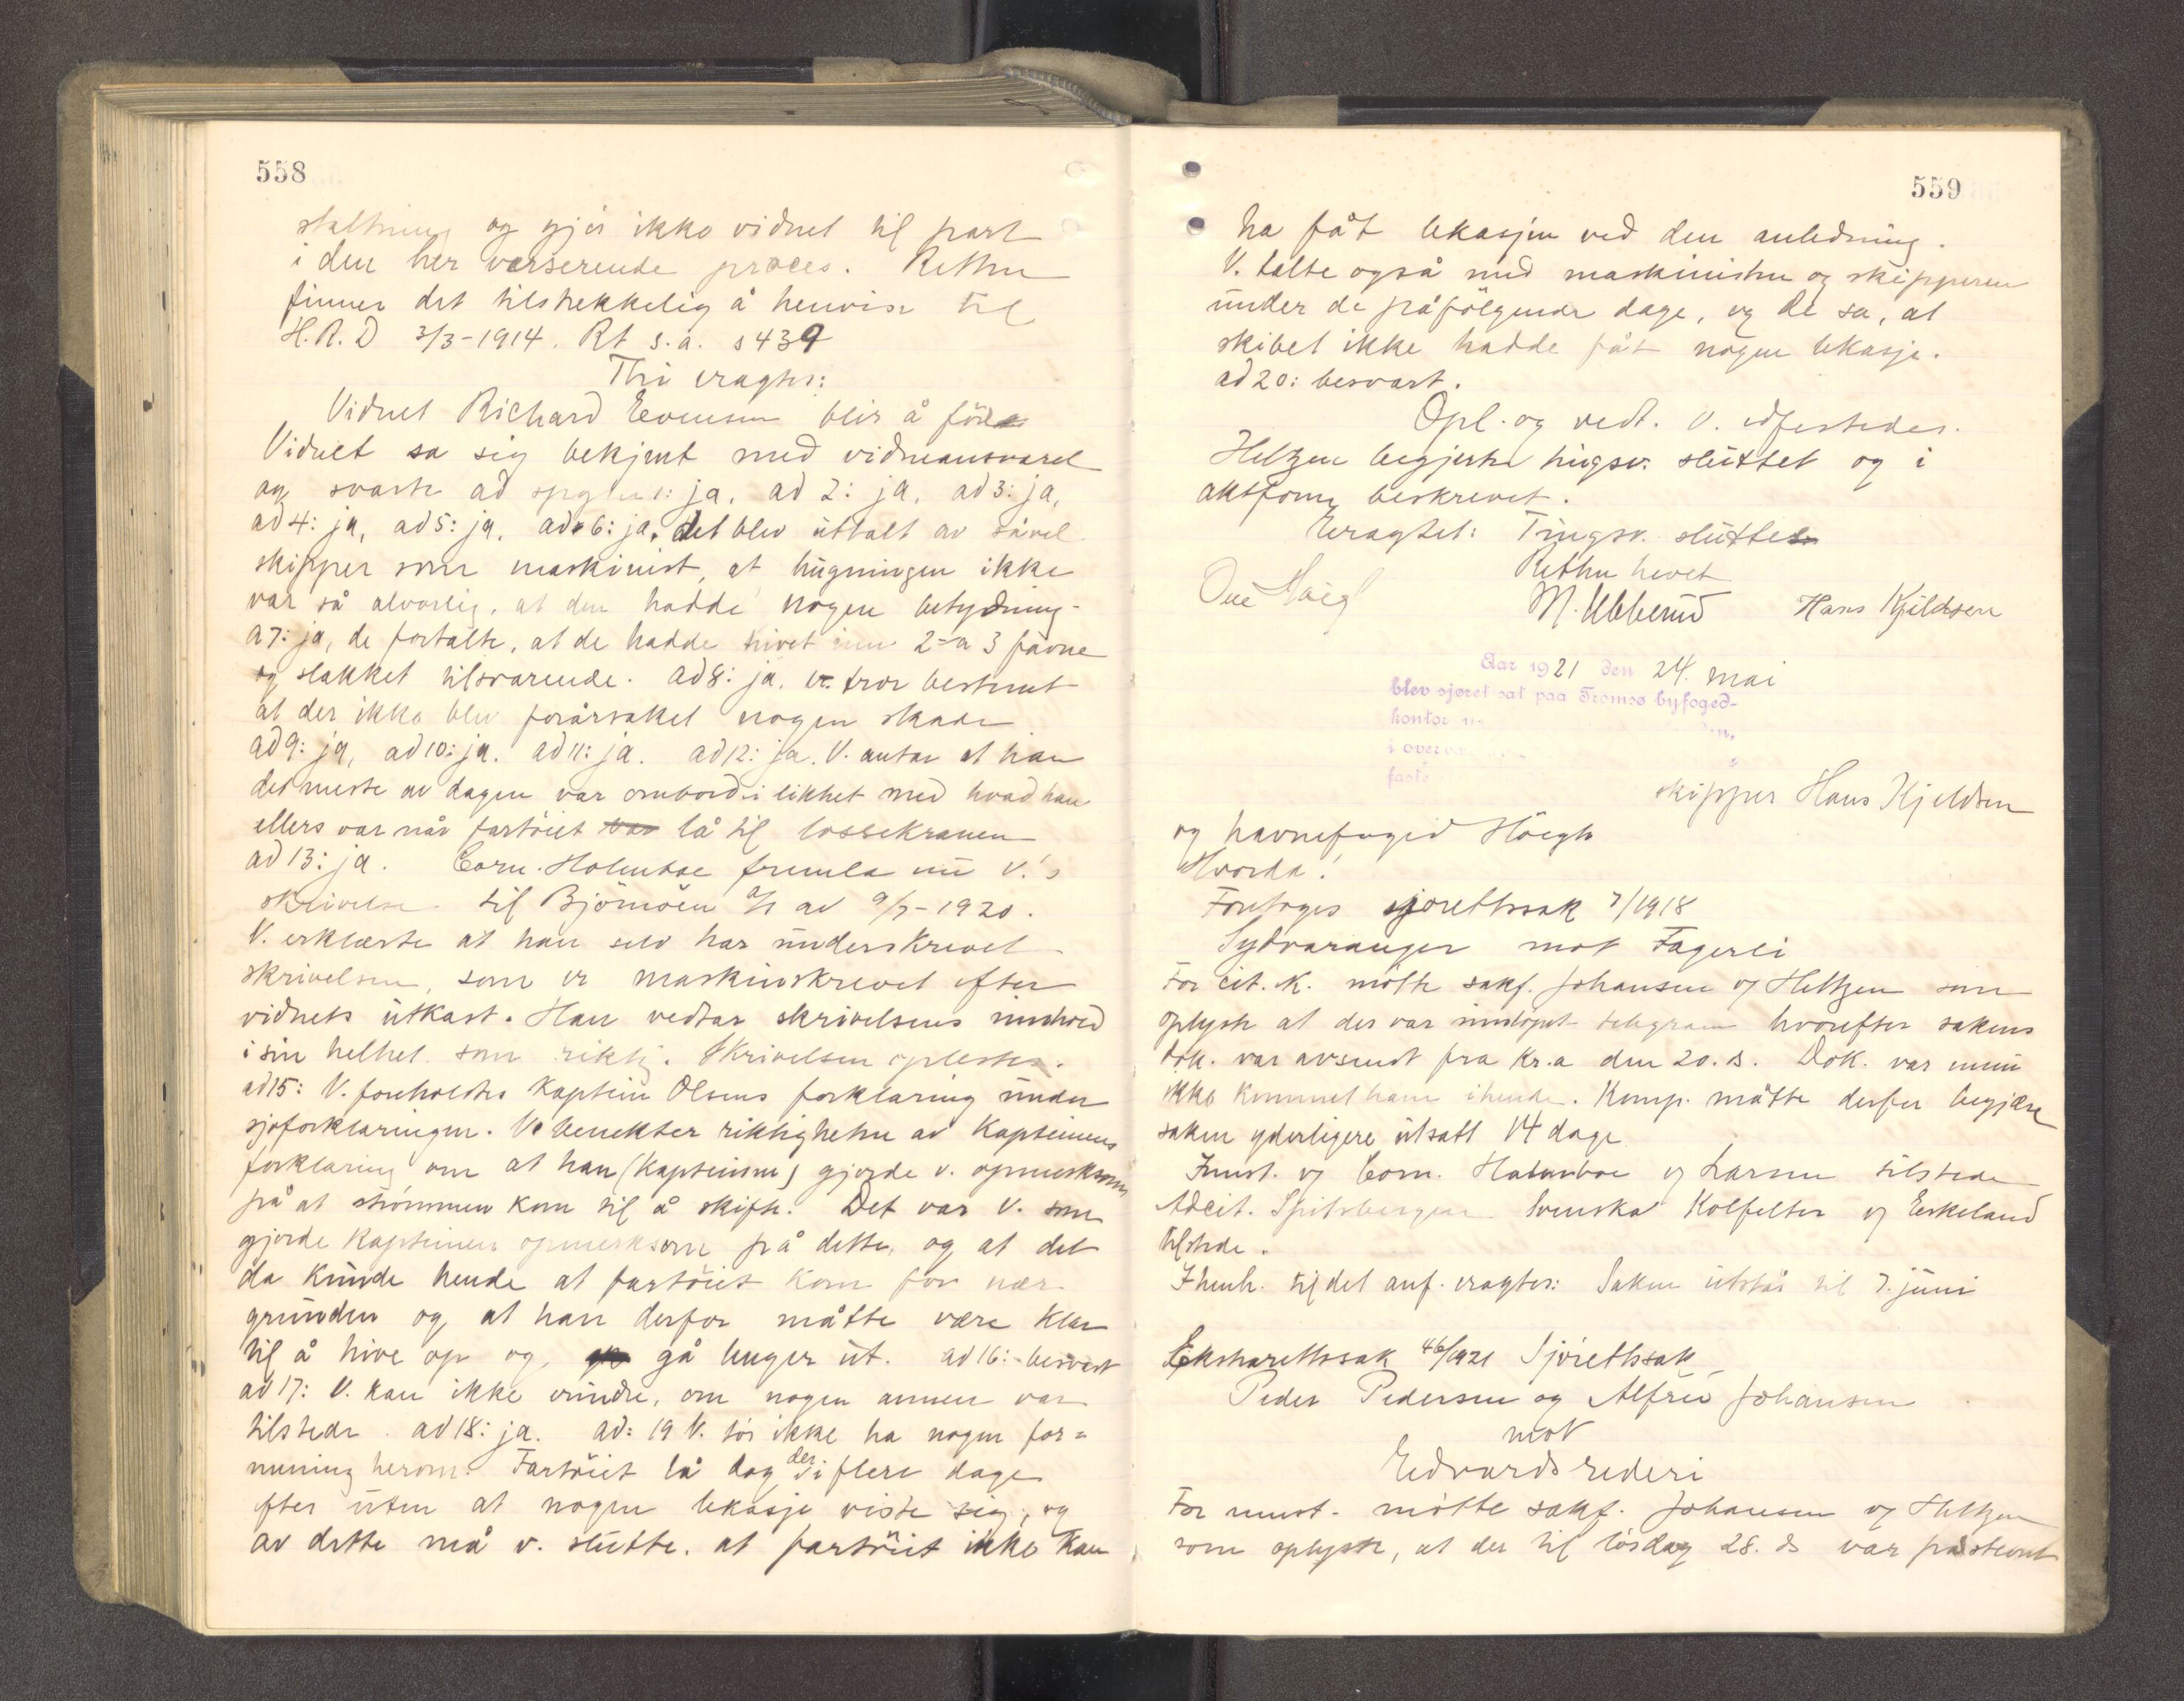 558
og gjør ikke vidnet til part
i den her verserende proces. Retten
finner det tilstrekkelig å henvise til
H.R.D 3/3-1914. Rt s.å. s 439
Thi eragtes:
Vidnet Richard Evensen blir å føre
Vidnet sa sig bekjent med vidneansvaret
og svarte ad spgsm 1: ja. ad 2: ja. ad 3: ja,
ad 4: ja, ad 5: ja. ad 6: ja, det blev uttalt av såvel
skipper som maskinist, at hugningen ikke
var så alvorlig, at den hadde nogen betydning.
a 7: ja, de fortalte, at de hadde hivet inn 2 a 3 favne
og slakket tilsvarende. ad 8: ja, v. tror bestemt
at der ikke blev forårsaket nogen skade
ad 9: ja, ad 10: ja. ad 11: ja. ad 12: ja. V. antar at han
det meste av dagen var ombord i likhet med hvad han
ellers var når fartöiet lå til lossekranen
ad 13: ja. Corn. Holmboe fremla nu V.'s
skrivelse til Björnöen a/s av 9/7-1920.
V. erklærte at han selv har underskrevet
skrivelsen, som er maskinskrevet efter
vidnets utkast. Han vedtar skrivelsens innhold
i sin helhet som riktig. Skrivelsen oplestes.
ad 15: V. foreholdtes Kaptein Olsens forklaring under
sjøforklaringen. V. benekter riktigheten av Kapteinens
forklaring om at han (Kapteinen) gjorde v. opmerksom
på at strömmen kom til å skifte. Det var V. som
gjorde Kapteinen opmerksom på dette, og at det
da kunde hende at fartöiet kom for nær
grunden og at han derfor måtte være klar
til å hive op og gå lenger ut. ad 16: besvart
ad 17: V. kan ikke erindre, om nogen annen var
tilstede. ad 18: ja. ad: 19 V. tör ikke ha nogen for=
mening herom. Fartöiet lå dog der i flere dage
efter uten at nogen lekasje viste sig, og
av dette må v. slutte, at fartöiet ikke kan
559
ha fåt lekasjen ved den anledning.
V. talte også med maskinisten og skipperen
under de påfölgende dage, og de sa, at
skibet ikke hadde fåt nogen lekasje.
ad 20: besvart.
Opl. og vedt. V. edfestedes.
Heltzen begjerte tingsv. sluttet og i
aktform beskrevet.
Eragtet: Tingsv. sluttes
Retten hevet
M. Ubberud Hans Kjeldsen
Aar 1921 den 24. mai
blev sjøret sat paa Tromsø byfoged-
kontor
skipper Hans Kjeldsen
og havnefoged Höegh
Hvorda:
Foretoges sjørettssak 7/1918
Sydvaranger mot Fagerli
For cit. K. mötte sakf. Johansen og Heltzen som
oplyste at der var innlöpet telegram hvorefter sakens
dok. var avsendt fra Kr.a den 20. ds. Dok. var ennu
ikke kommet ham ihende. Komp. måtte derfor begjære
saken yderligere utsatt 14 dage
Innst. og Corn. Holmboe og Larsen tilstede
Adcit. Spitsbergen Svenska Kolfelter og Eskeland
tilstede.
I henh. til det anf. eragtes: Saken utstår til 7. juni
Ekstrarettssak 46/1921 Sjörettssak
Peder Pedersen og Alfred Johansen
mot
Edvards rederi
For innst. mötte sakf. Johansen og Heltzen
som oplyste, at der til lördag 28. ds var påstevnt